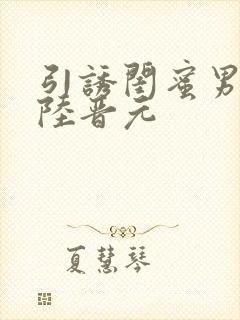 引誘閨蜜男
陸晋元
夏慧琴